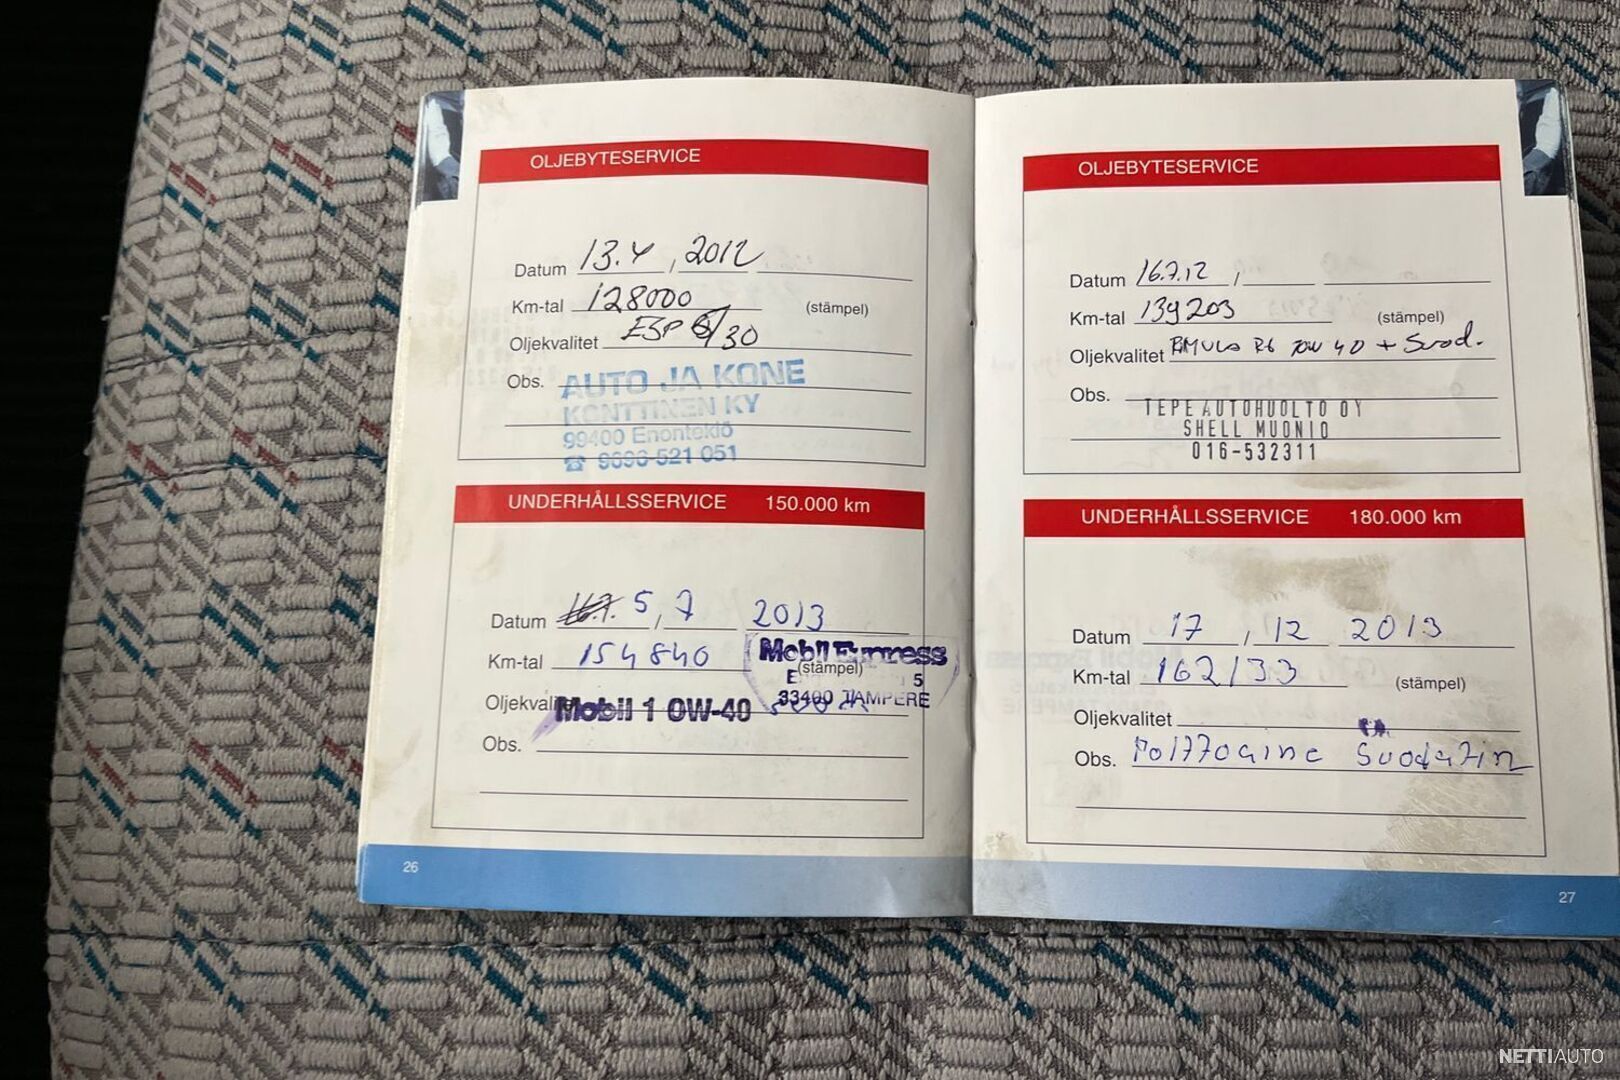 OLJEBYTESERVICE
Datum 13.4, 2012
Km-tal 128000 (stämpel)
Oljekvalitet ESP 5/30
Obs. AUTO JA KONE
KONTTINEN KY
99400 Enontekiö
☎ 9696-521 051
UNDERHÅLLSSERVICE 150.000 km
Datum 5, 7 2013
Km-tal 154840 (stämpel)
Mobil Express
33400 TAMPERE
Oljekvalitet Mobil 1 0W-40
Obs.
26
OLJEBYTESERVICE
Datum 16.7.12 /
Km-tal 139203 (stämpel)
Oljekvalitet R6 10W 40 + Suod.
Obs.
TEPE AUTOHUOLTO OY
SHELL MUONIO
016-532311
UNDERHÅLLSSERVICE 180.000 km
Datum 17, 12 2013
Km-tal 162133 (stämpel)
Oljekvalitet
Obs. Polttoaine Suodatin
27
NETTIAUTO